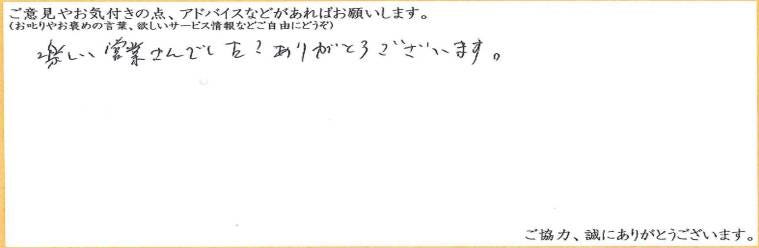 ご意見やお気付きの点、アドバイスなどがあればお願いします。
(お叱りやお褒めの言葉、欲しいサービス情報などご自由にどうぞ)
楽しい営業さんでした！ありがとうございます。
ご協力、誠にありがとうございます。